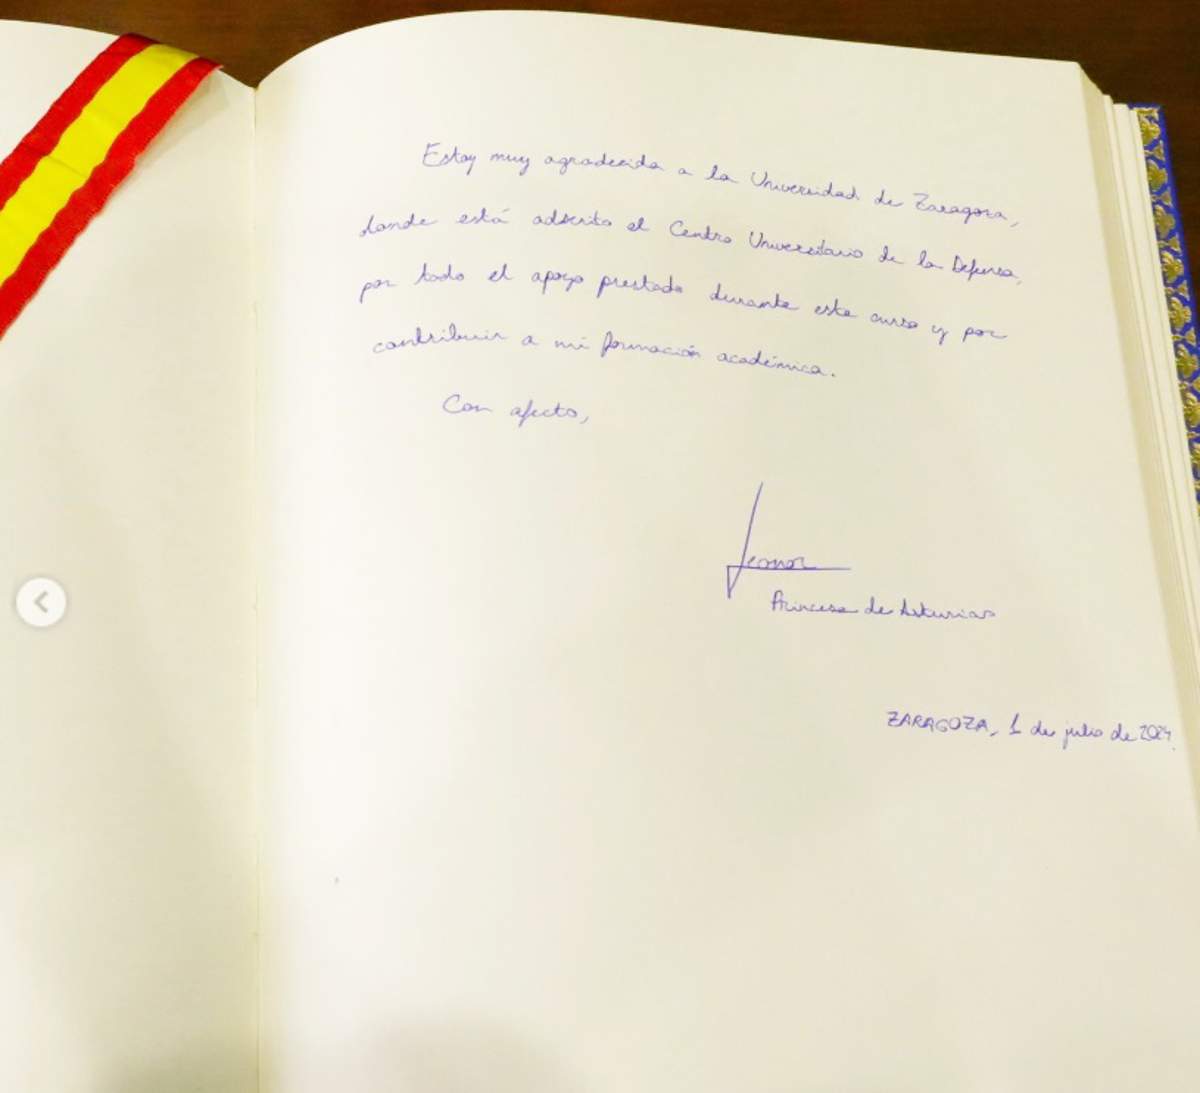 Estoy muy agradecida a la Universidad de Zaragoza,
donde está adscrito el Centro Universitario de la Defensa,
por todo el apoyo prestado durante este curso y por
contribuir a mi formación académica.
Con afecto,
Leonor
Princesa de Asturias
ZARAGOZA, 1 de julio de 2024.